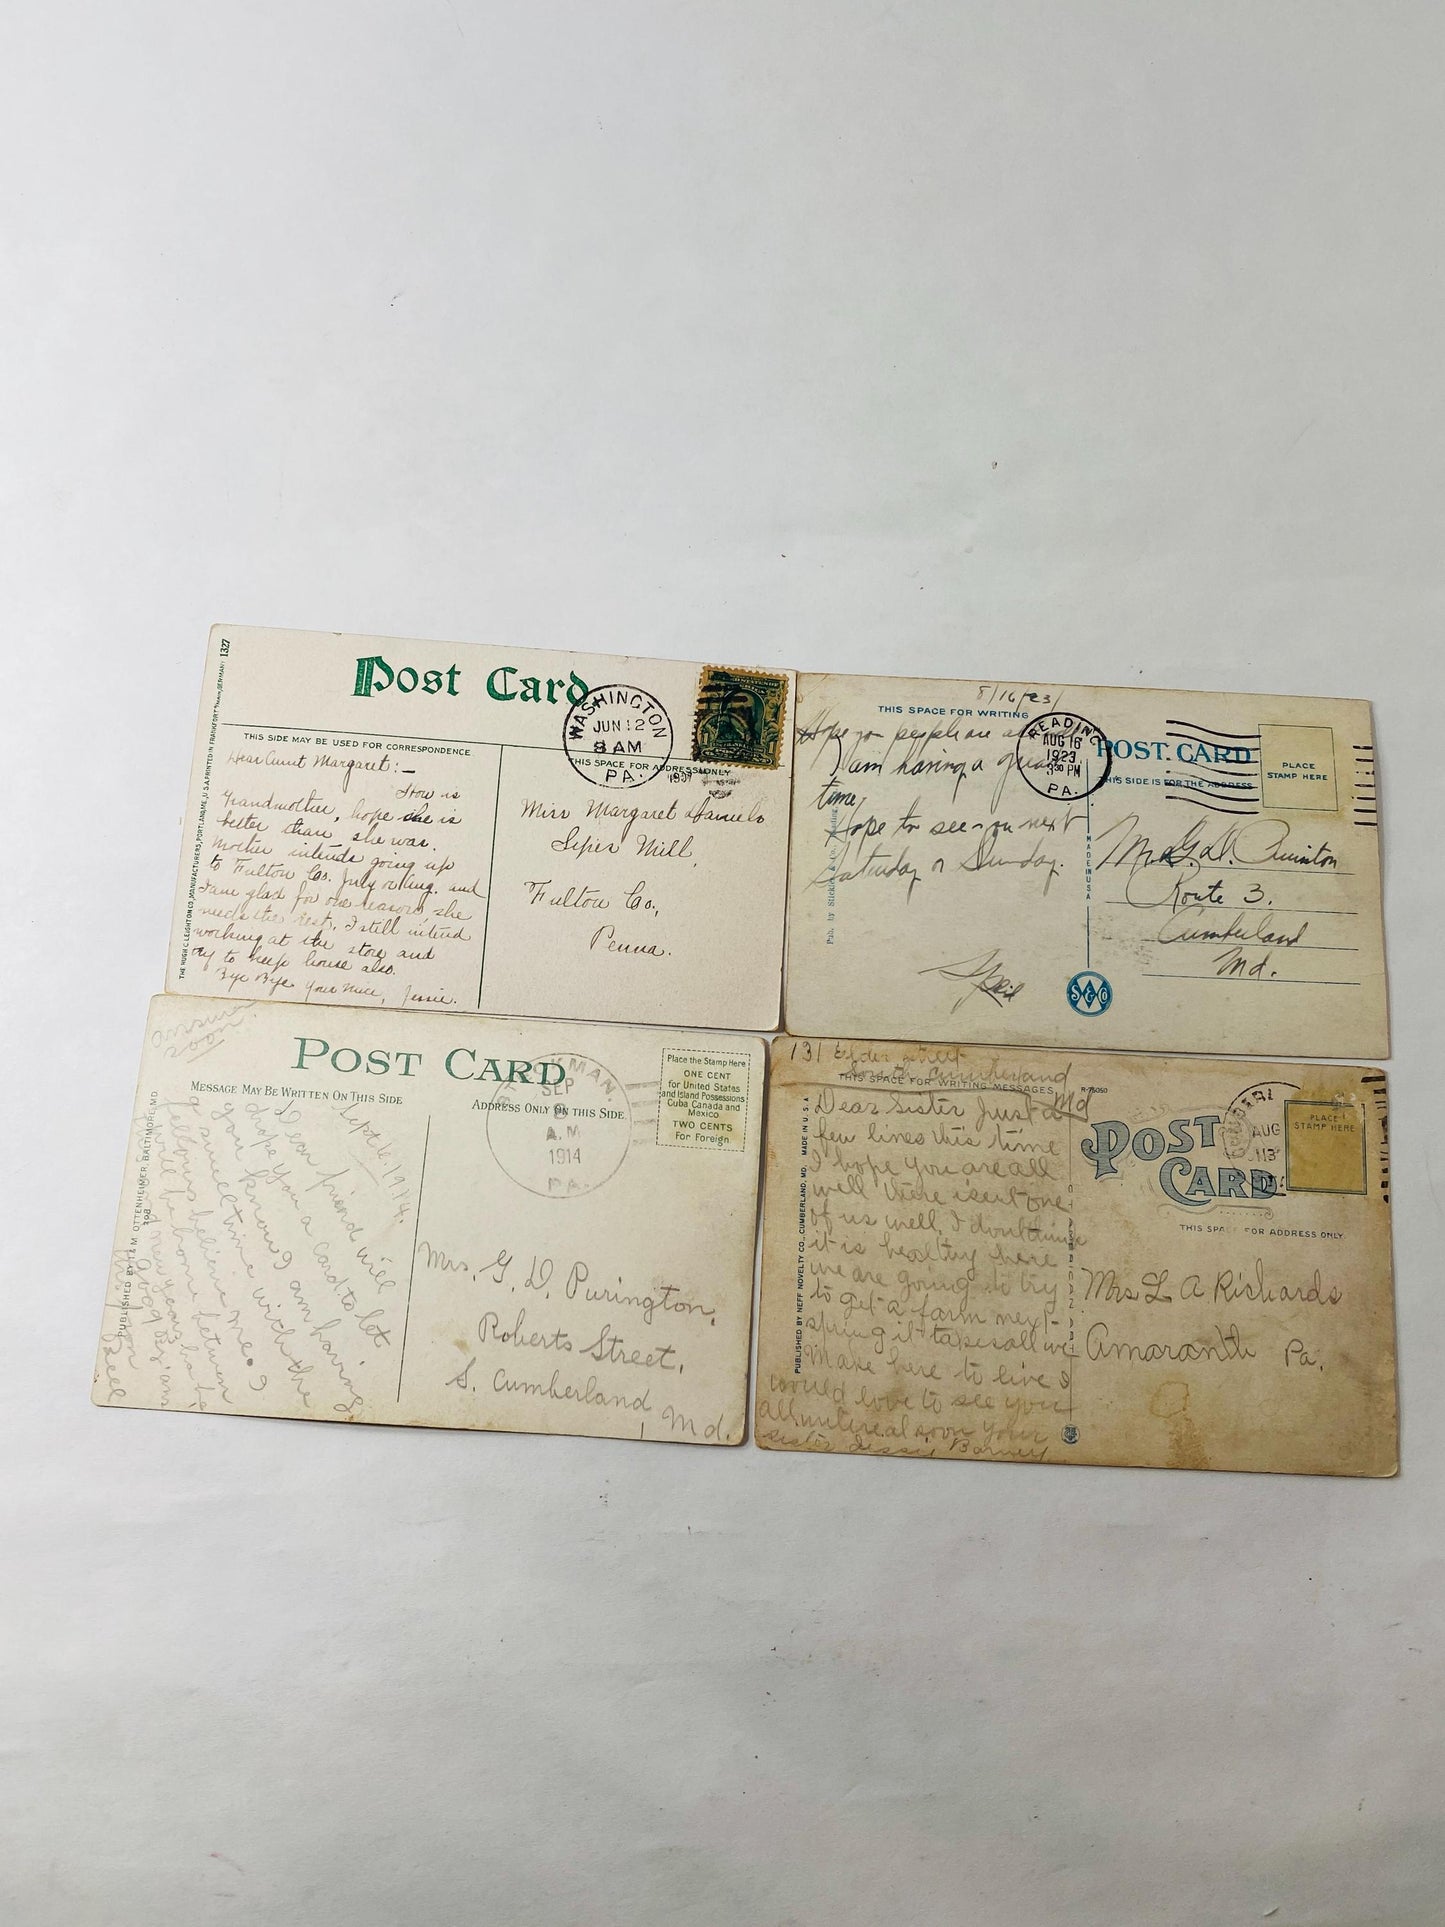 Post Card
THIS SIDE MAY BE USED FOR CORRESPONDENCE
THIS SPACE FOR ADDRESS ONLY
THE HUGH C. LEIGHTON CO., MANUFACTURERS, PORTLAND, ME., U.S.A. PRINTED IN FRANKFORT
GERMANY 1327
WASHINGTON
JUN 12
8 AM
PA.
1907
Dear Aunt Margaret:—
How is
Grandmother, hope she is
better than she was.
Mother intends going up
to Fulton Co. July or Aug. and
I am glad for one reason, she
needs the rest. I still intend
working at the store and
try to keep house also.
Bye Bye. Your niece, Jessie.
Miss Margaret Daniels
Sipes Mill,
Fulton Co.,
Penna.
8/16/23
THIS SPACE FOR WRITING
POST CARD
THIS SIDE IS FOR THE ADDRESS
PLACE
STAMP HERE
READING
AUG 16
1923
3:30 PM
PA.
MADE IN U.S.A.
Hope you people are
I am having a
time
Hope to see you next
Saturday or Sunday.
Pub. by
S W & Co
Route 3.
Cumberland
Md.
answer
soon
POST CARD
MESSAGE MAY BE WRITTEN ON THIS SIDE
ADDRESS ONLY ON THIS SIDE.
Place the Stamp Here
ONE CENT
for United States
and Island Possessions
Cuba Canada and
Mexico
TWO CENTS
For Foreign
SEP
A.M.
1914
PA.
PUBLISHED BY I. & M. OTTENHEIMER, BALTIMORE, MD.
Sept 1, 1914.
Dear friend will
drop you a card to let
you know I am having
a swell time with the
fellows believe me. I
will be home between
and new years
Good By
Mrs. G. D. Purington,
Roberts Street,
S. Cumberland, Md.
131 Elder street
South Cumberland
Md
THIS SPACE FOR WRITING MESSAGES
R-75050
POST
CARD
THIS SPACE FOR ADDRESS ONLY.
PLACE
STAMP HERE
AUG
13
PUBLISHED BY NEFF NOVELTY CO., CUMBERLAND, MD. MADE IN U.S.A.
Dear Sister Just a
few lines this time
I hope you are all
well there isent one
of us well. I dont think
it is healthy here
we are going to try
to get a farm next
spring it takes all we
make here to live I
would love to see you
all
soon your
sister Jessie Barney
Mrs L A Richards
Amaranth Pa.